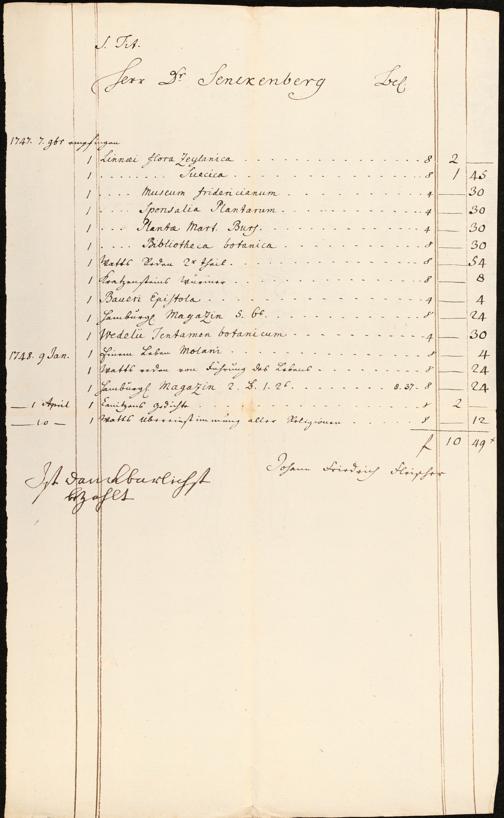 S. Tit.
Herr Dr Senckenberg
1747. 7. 9br empfingen
1 Linnæi flora Zeylanica 8 2 —
1 Suecica 8 1 45
1 Museum fridericianum 4 — 30
1 Sponsalia Plantarum 4 — 30
1 Planta Mart. Burs. 4 — 30
1 Bibliotheca botanica 8 — 30
1 Watts Reden 2r theil 8 — 54
1 Kratzensteins Würmer 8 — 8
1 Baueri Epistola 4 — 4
1 Hamburg. Magazin 5. 6t. 8 — 24
1 Wedelii Tentamen botanicum 4 — 30
1748. 9 Jan. 1 Leben Molani 8 — 4
1 Watts reden von Führung des Lebens 8 — 24
1 Hamburg. Magazin 2. B. 1. 2t. 8. 37. 8 — 24
— 1 April 1 Canitzens gedichte 8 2 —
— 10 — 1 Watts übereinstimmung aller Religionen 8 — 12
f 10 49
Johann Friedrich Fleischer
Ist danckbarlichst
bezahlt